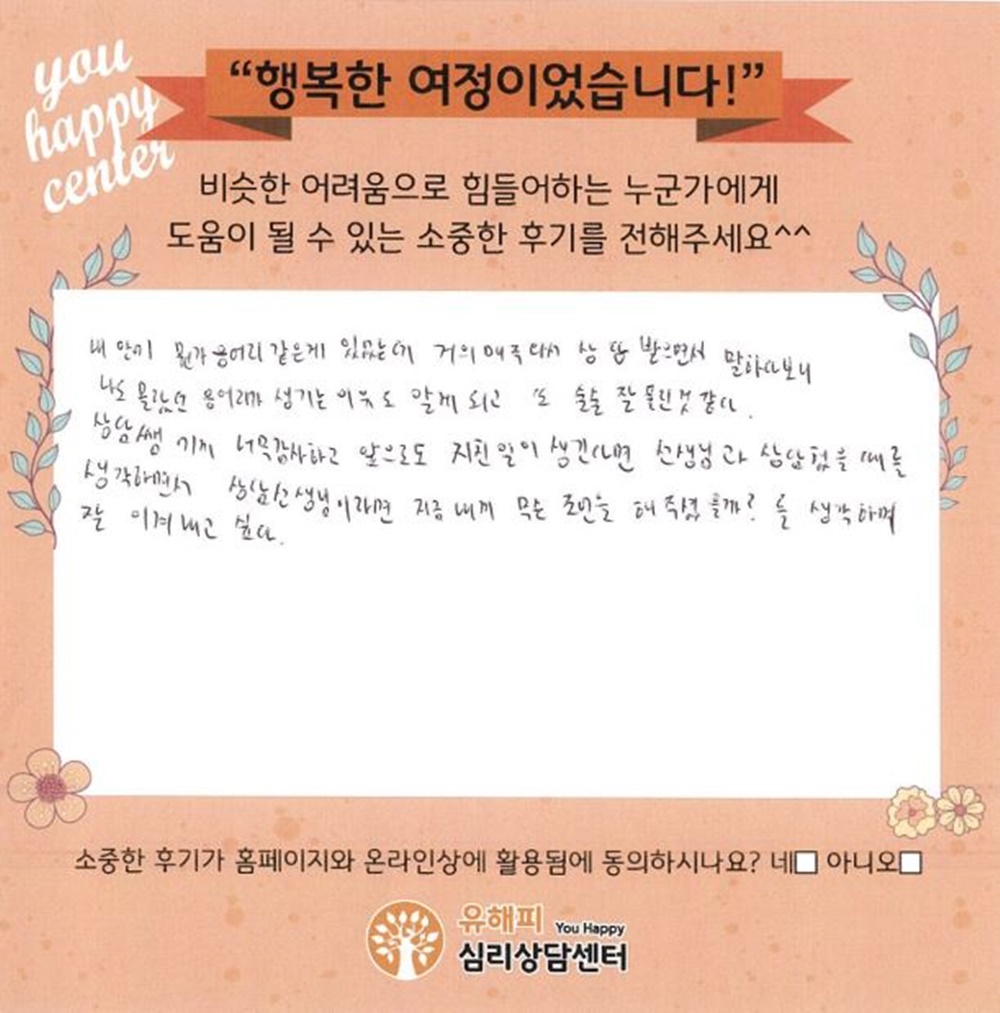 you
happy
center
“행복한 여정이었습니다!”
비슷한 어려움으로 힘들어하는 누군가에게
도움이 될 수 있는 소중한 후기를 전해주세요^^
내 안에 뭔가 응어리 같은게 있었는데 거의 매주 다시 상담 받으면서 말하다보니
나도 몰랐던 응어리가 생기는 이유도 알게 되고 또 술술 잘 풀린것 같다.
상담쌤 께 너무감사하고 앞으로도 지친일이 생긴다면 선생님과 상담했을 때를
생각하면서 상담선생님이라면 지금 내게 무슨 조언을 해주셨을까? 를 생각하며
잘 이겨내고 싶다.
소중한 후기가 홈페이지와 온라인상에 활용됨에 동의하시나요? 네□ 아니오□
유해피 You Happy
심리상담센터